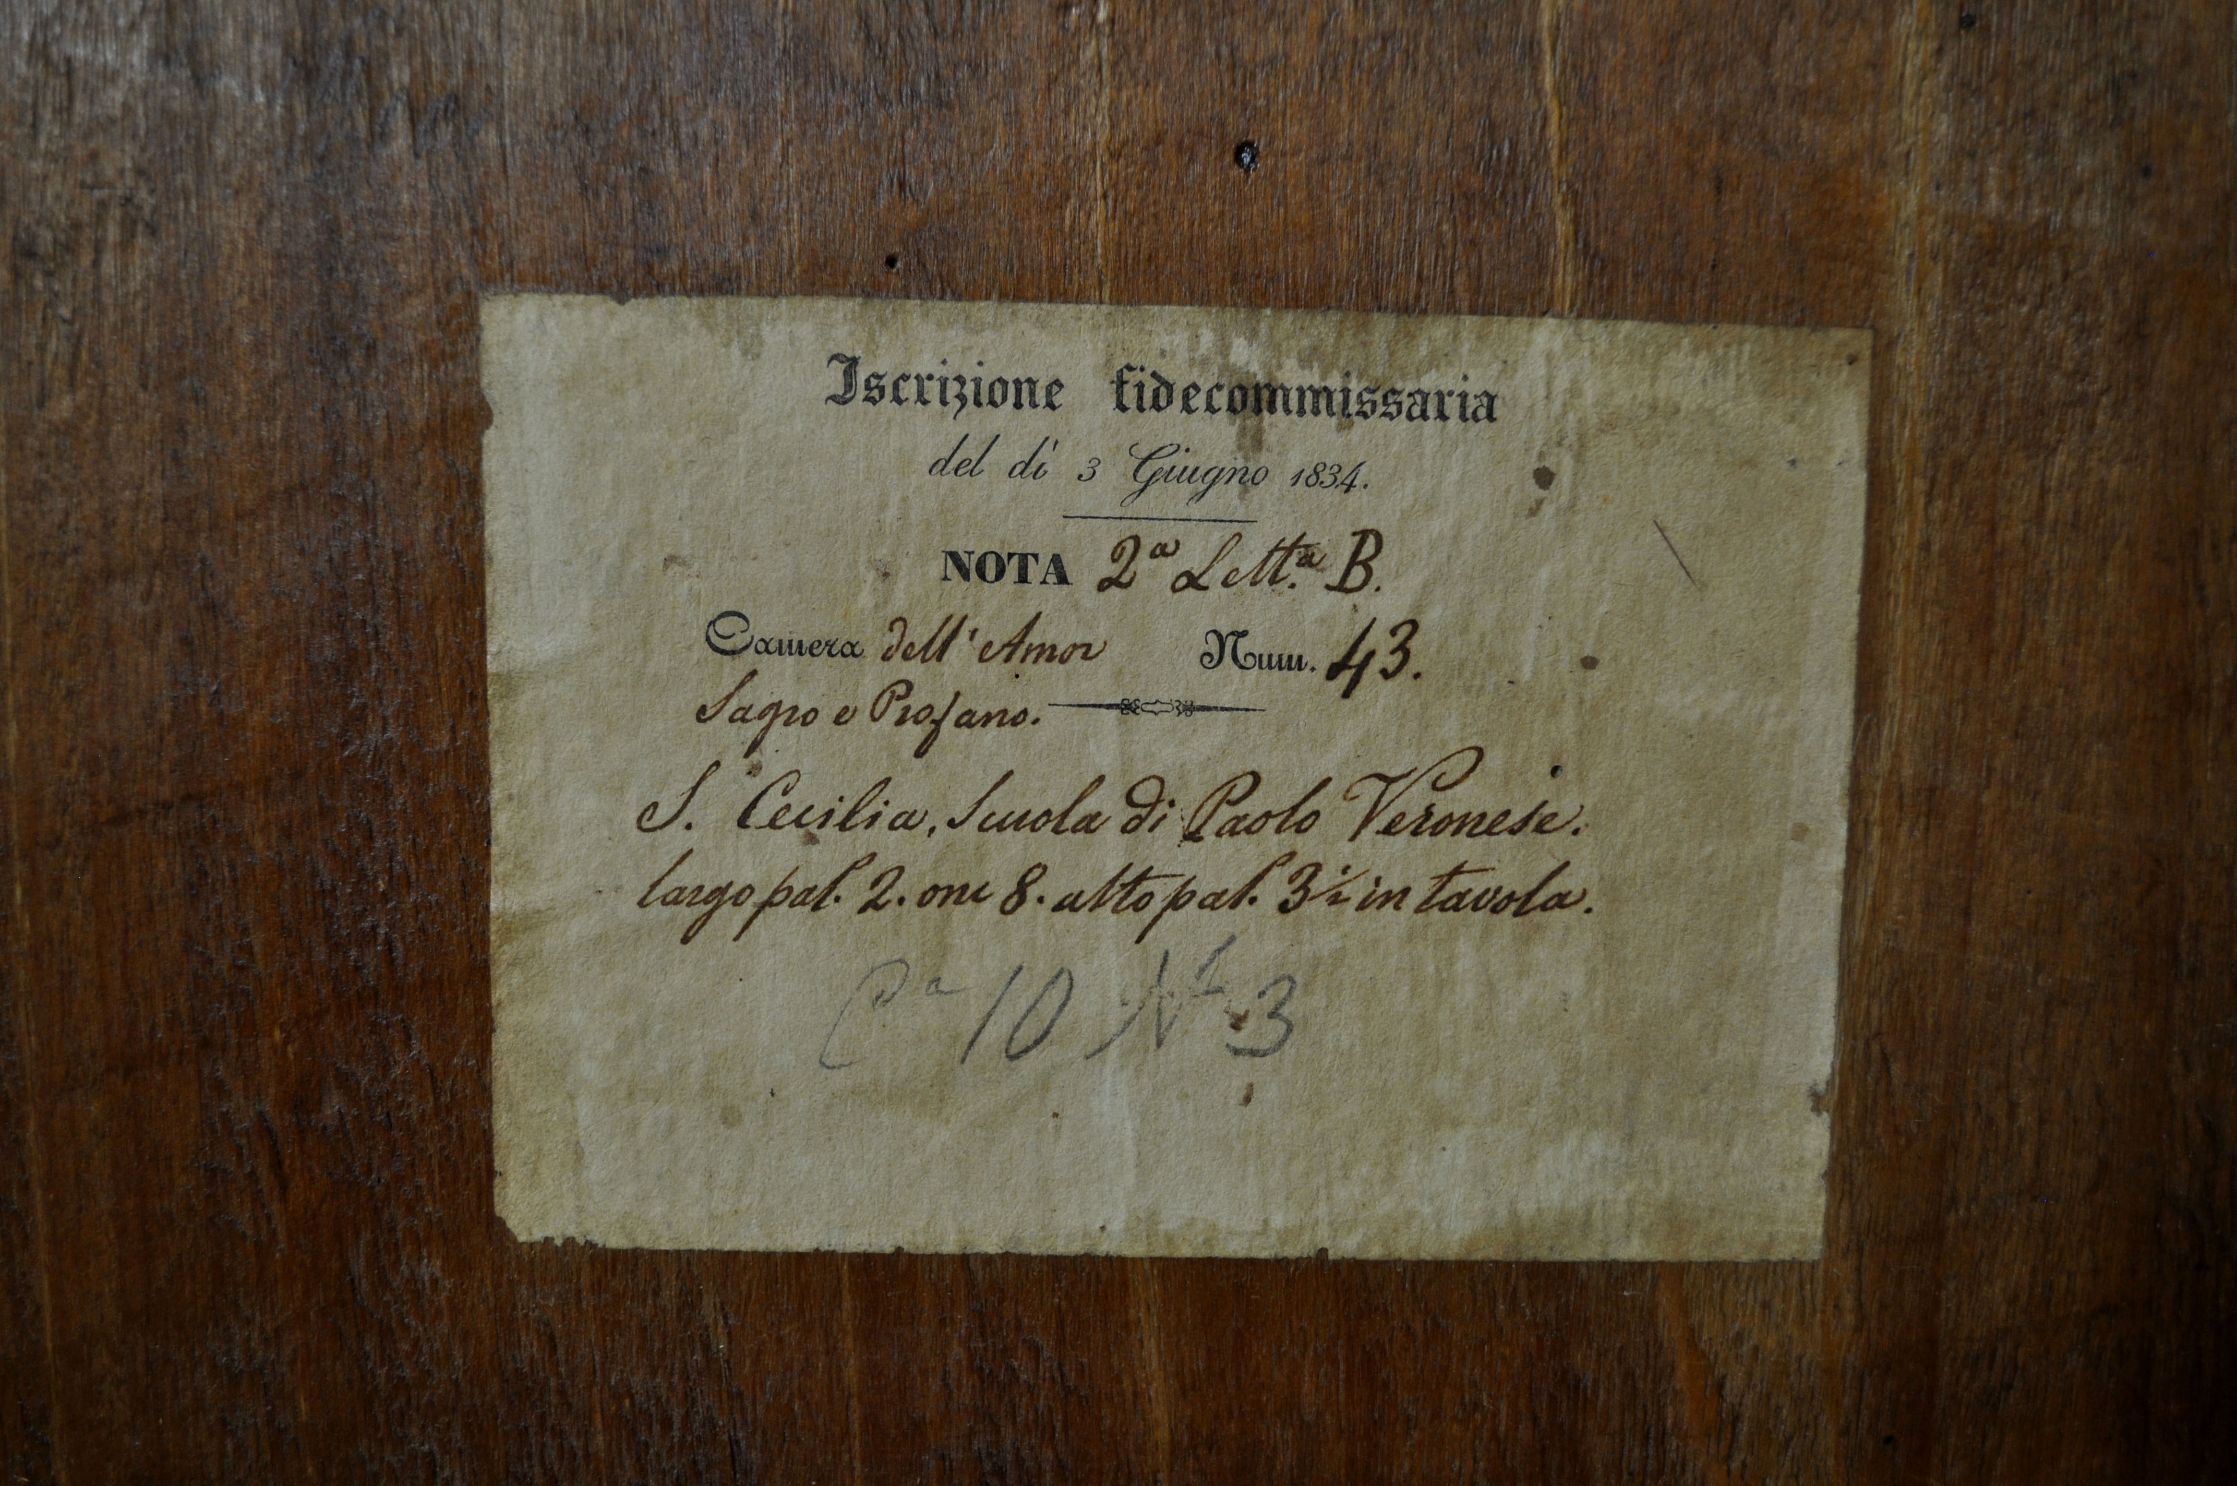 Iscrizione fidecommissaria
del dì 3 Giugno 1834.
NOTA 2ª Lett.ª B.
Camera dell' Amor Num. 43.
Sagro e Profano.
S. Cecilia, Scuola di Paolo Veronese.
largo pal. 2. onc 8. alto pal. 3 ½ in tavola.
Cª 10 Nº 3